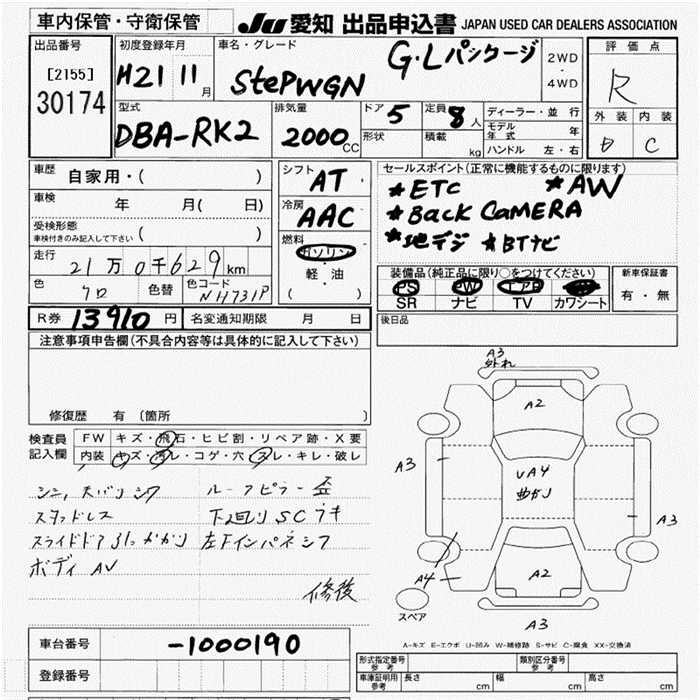 車内保管・守衛保管
JU 愛知 出品申込書 JAPAN USED CAR DEALERS ASSOCIATION
出品番号
[2155]
30174
初度登録年月
H21 11月
車名・グレード
StePWGN G・Lパッケージ
2WD・4WD
評価点
R
外装 内装
D C
型式
DBA-RK2
排気量
2000CC
ドア 5
形状
定員 8人
積載 kg
ディーラー・並行
モデル年式 年
ハンドル 左・右
車歴 自家用・( )
車検 年 月( 日)
受検形態
車検付きのみ記入して下さい ( )
走行 21万0千629km
色 クロ 色替 色コード NH731P
シフト AT
冷房 AAC
燃料
ガソリン・
軽・油
( )
セールスポイント(正常に機能するものに限ります)
*ETC *AW
*Back CAMERA
*地デジ *BTナビ
装備品(純正品に限り○をつけてください)
PS PW
SR ナビ TV カワシート
新車保証書
有・無
R券 13910円 名変通知期限 月 日
後日品
注意事項申告欄(不具合内容等は具体的に記入して下さい)
修復歴 有 〔箇所
検査員記入欄
FW キズ・飛石・ヒビ割・リペア跡・X要
内装 コゲ・穴・スレ・キレ・破レ
シミ,天バリシワ ルーフピラー歪
スタッドレス 下廻りSCウキ
スライドドア引っかかり 左下インパネシワ
ボディAV
修後
A3
外れ
A2
A3
UA4
曲がり
A3
A4
A2
スペア
A3
A-キズ E-エクボ U-凹み W-補修跡 S-サビ C-腐食 XX-交換済
車台番号 -1000190
登録番号
形式指定番号 参考
類別区分番号 参考
車庫証明用 参考 長さ cm 幅 cm 高さ cm